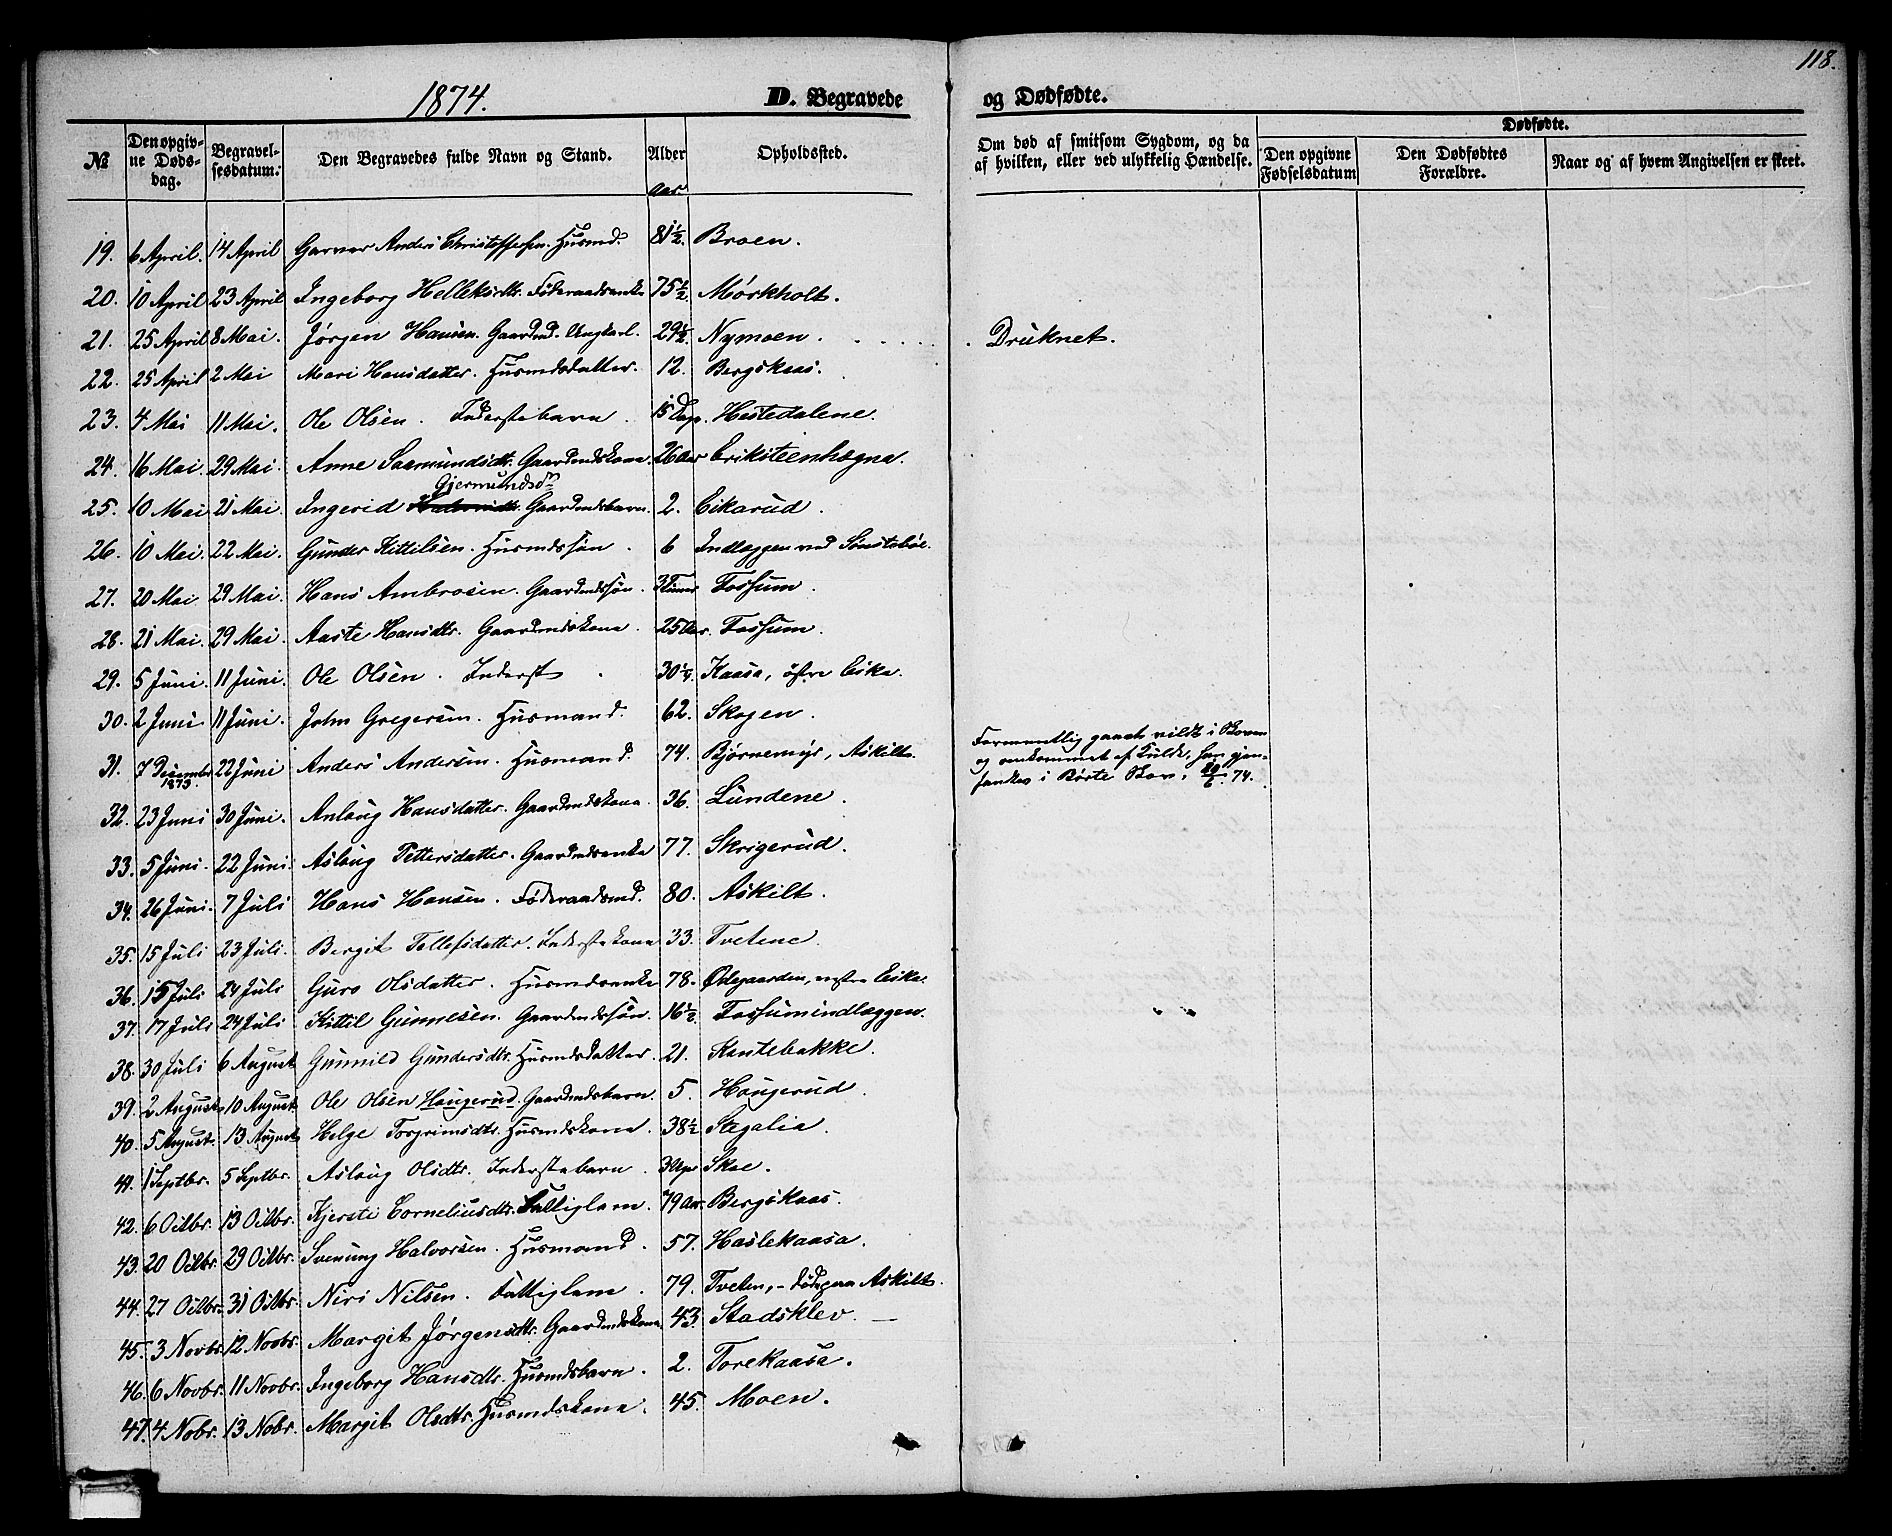 118.
1874. D. Begravede og Dødfødte.
№ Den opgivne Dødsdag. Begravelsesdatum. Den Begravedes fulde Navn og Stand. Alder Opholdssted. Om død af smitsom Sygdom, og da af hvilken, eller ved ulykkelig Hændelse. Dødfødte. Den opgivne Fødselsdatum Den Dødfødtes Forældre. Naar og af hvem Angivelsen er skeet.
Aar
19. 6 April. 14 April Garver Anders Christoffersen. Husmd. 81½. Broen.
20. 10 April 23 April Ingeborg Helleksdtr. Føderaadsenke 75½ Mørkholt.
21. 25 April 8 Mai. Jørgen Hansen. Gaardmd. Ungkarl. 29½. Nymoen. Druknet.
22. 25 April 2 Mai Mari Hansdatter. Husmdsdatter. 12. Bergskaas.
23. 4 Mai 11 Mai. Ole Olsen. Inderstebarn. 15 Dage. Hestedalene.
24. 16 Mai 29 Mai. Anne Saamundsdtr. Gaardmdskone. 26 Aar Eriksteenhøgna.
Gjermundsdtr
25. 10 Mai 21 Mai. Ingerid Gaardmdsbarn. 2. Eikarud.
26. 10 Mai. 22 Mai. Gunder Kittilsen. Husmdssøn. 6 Indlæggen ved Sønstebøe.
27. 20 Mai 29 Mai. Hans Ambrosen. Gaardmdssøn. 3 Timer Fossum.
28. 21 Mai. 29 Mai. Aaste Hansdtr. Gaardmdskone. 25 Aar. Fossum.
29. 5 Juni. 11 Juni. Ole Olsen. Inderst. 30¼. Kaasa, østre Eika.
30. 2 Juni. 11 Juni. John Gregersen. Husmand. 62. Skogen.
31. 7 December 1873. 22 Juni Anders Andersen. Husmand. 74. Bjørnemyr, Askilt. Formentlig gaaet vildt i Skoven
og omkommet af Kulde, han gjen-
fandtes i Børte Skov, 74.
32. 23 Juni 30 Juni. Anlaug Hansdatter. Gaardmdskone. 36. Lundene.
33. 5 Juni. 22 Juni. Aslaug Pettersdatter. Gaardmdsenke 77. Skrigerud.
34. 26 Juni. 7 Juli Hans Hansen. Føderaadsmd. 80. Askilt.
35. 15 Juli 23 Juli. Bergit Tellefsdatter. Inderstekone 33. Tvetene.
36. 15 Juli 24 Juli Guro Olsdatter. Husmdsenke 78. Ødegaarden, vestre Eika.
37. 17 Juli 24 Juli Kittil Gunnesen. Gaardmdssøn. 16½. Fossumindlæggen.
38. 30 Juli 6 August Gunnild Gundersdtr. Husmdsdatter. 21. Kantebakke.
39. 2 August 10 August Ole Olsen Haugerud. Gaardmdsbarn. 5. Haugerud.
40. 5 August. 13 August Helge Torgrimsdtr. Husmdskone. 38½ Stegalia.
41. 1 Septbr. 5 Septbr. Aslaug Olsdtr. Inderstebarn. 3 Uger Skoe.
42. 6 Octbr. 13 Octbr. Kjersti Corneliusdtr. Fattiglem. 79 Aar. Bergskaas.
43. 20 Octbr. 29 Octbr. Svenung Halvorsen. Husmand. 57. Haslekaasa.
44. 27 Octbr. 31 Octbr. Niri Nilsen. Fattiglem. 79. Tveten, - død paa Askilt.
45. 3 Novbr. 12 Novbr. Margit Jørgensdtr. Gaardmdskone. 43. Stadsklev. —
46. 6 Novbr. 11 Novbr. Ingeborg Hansdtr. Husmdsbarn. 2. Torekaasa.
47. 4 Nobr. 13 Nobr. Margit Olsdtr. Husmdskone. 45. Moen.